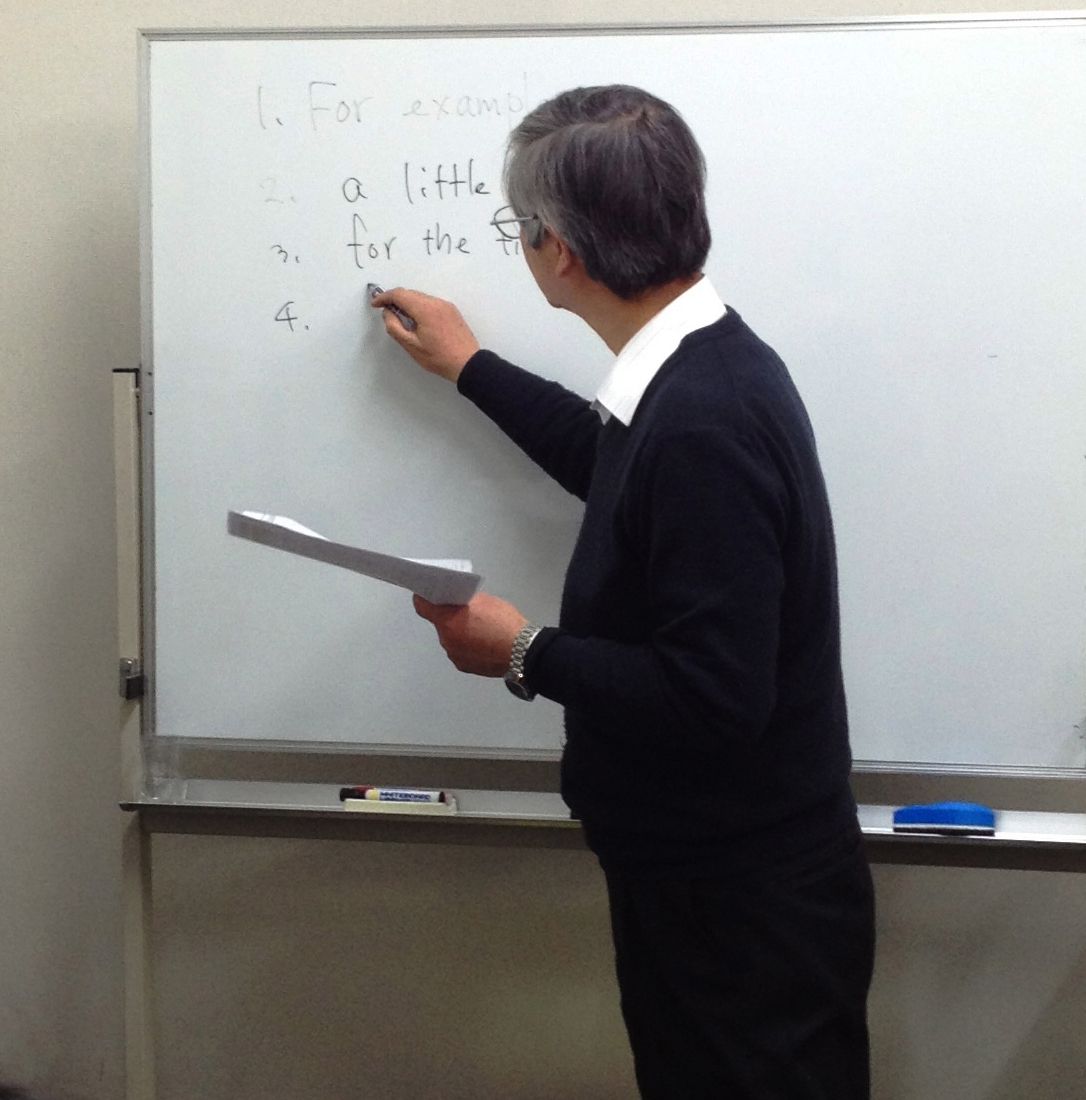 1. For exampl
2. a little
3. for the ti
4.
WHITEBOARD